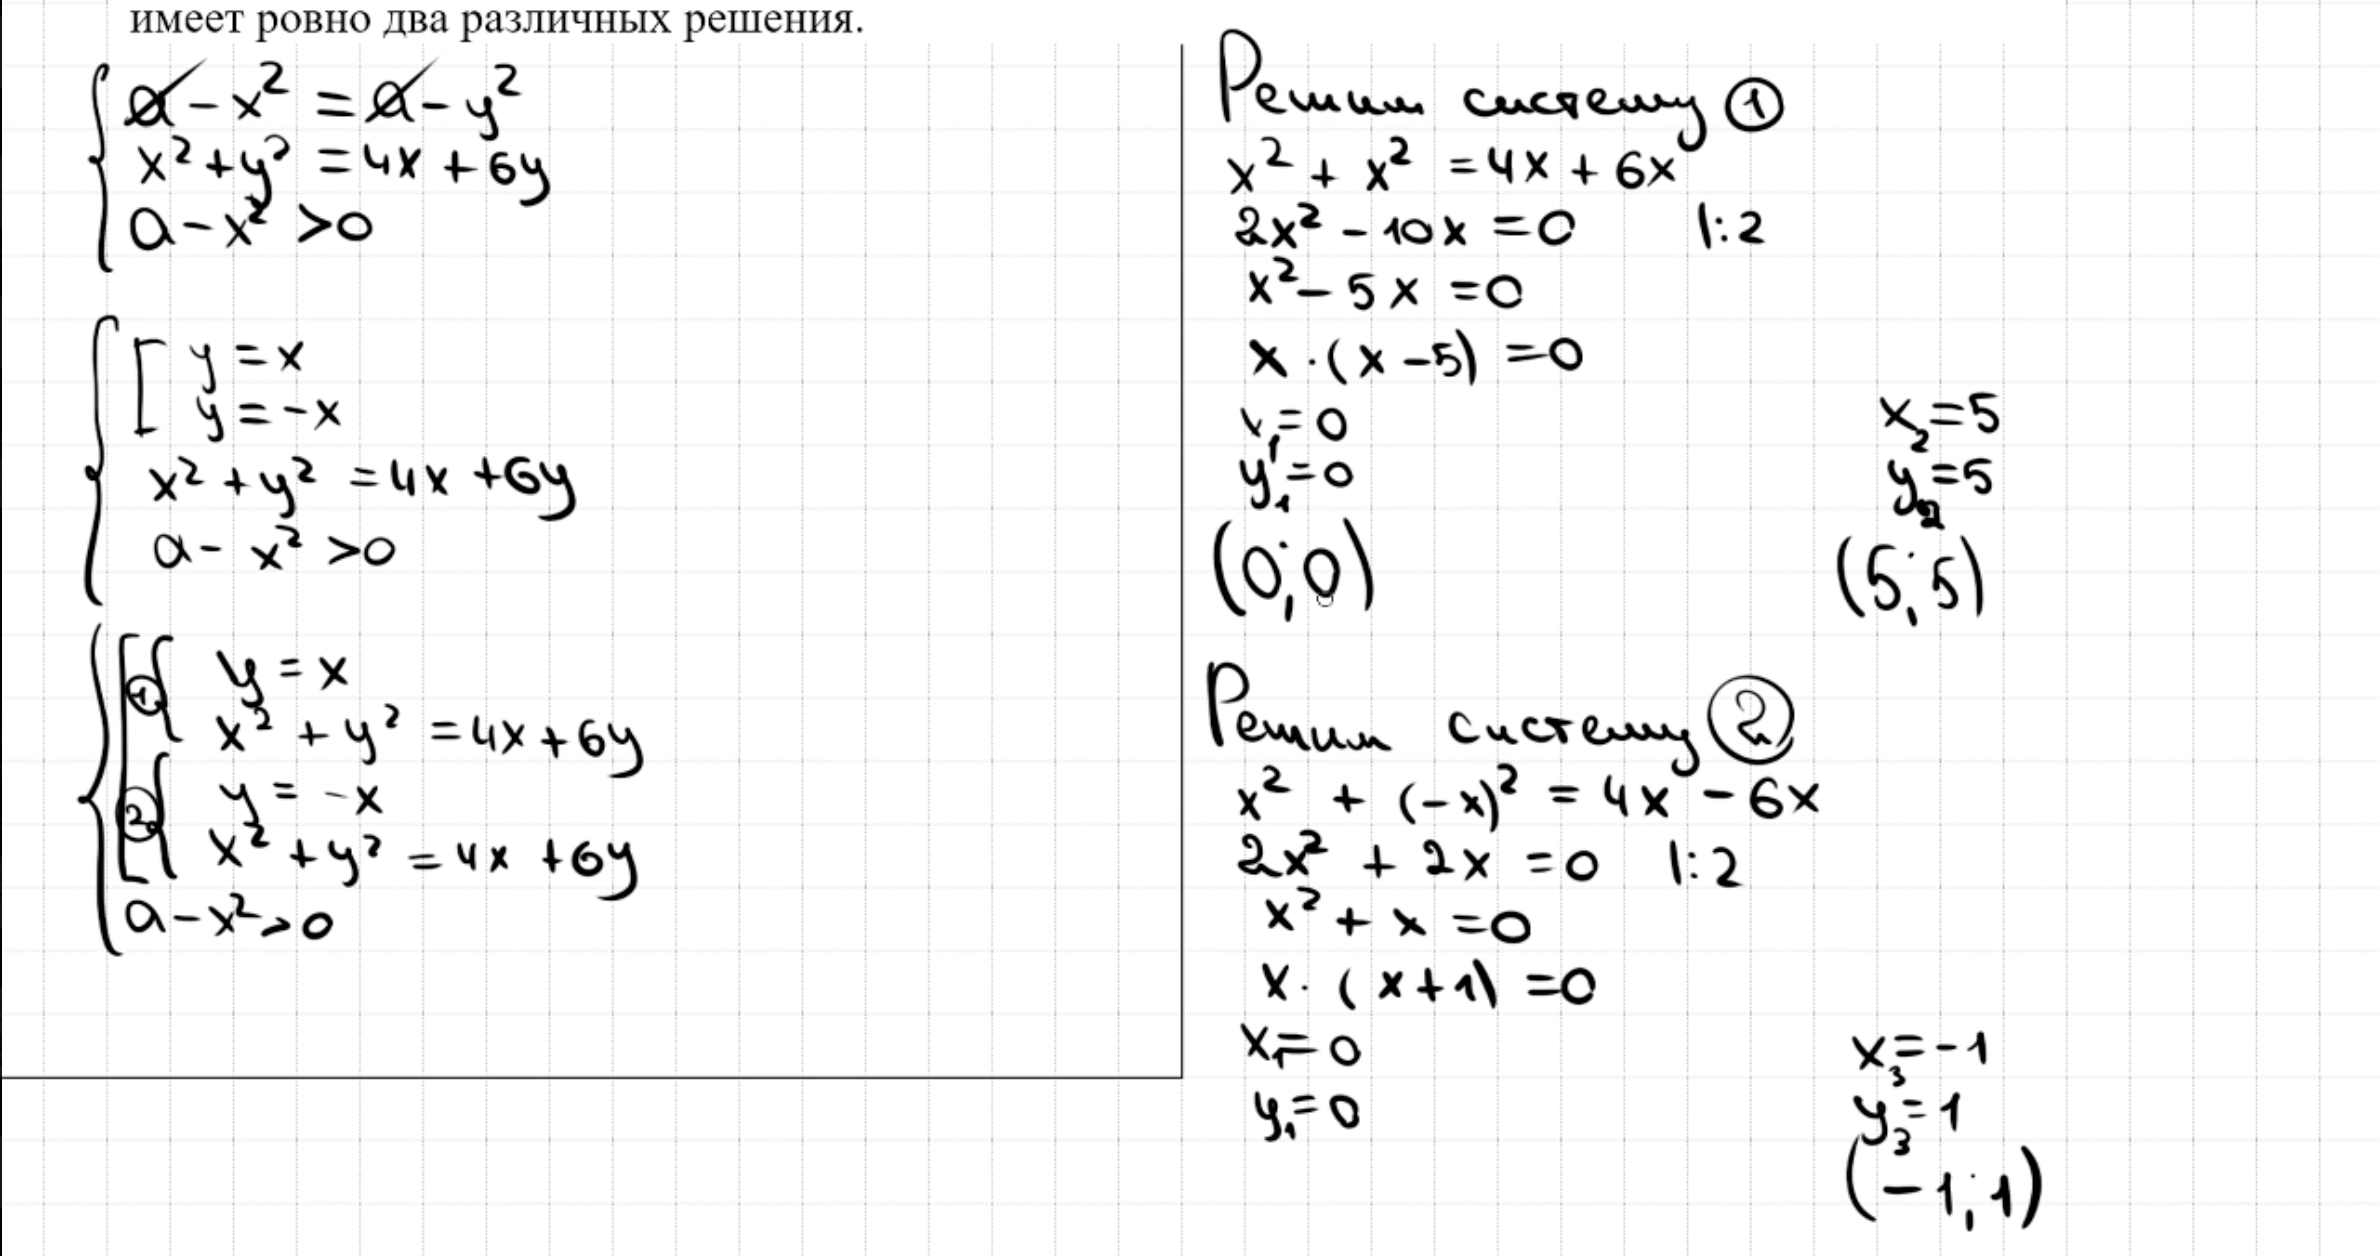 имеет ровно два различных решения.
a - x² = a - y²
x² + y² = 4x + 6y
a - x² > 0
y = x
y = -x
x² + y² = 4x + 6y
a - x² > 0
① y = x
x² + y² = 4x + 6y
② y = -x
x² + y² = 4x + 6y
a - x² > 0
Решим систему ①
x² + x² = 4x + 6x
2x² - 10x = 0 |:2
x² - 5x = 0
x · (x - 5) = 0
x₁ = 0
y₁ = 0
(0; 0)
x₂ = 5
y₂ = 5
(5; 5)
Решим систему ②
x² + (-x)² = 4x - 6x
2x² + 2x = 0 |:2
x² + x = 0
x · (x + 1) = 0
x₁ = 0
y₁ = 0
x₃ = -1
y₃ = 1
(-1; 1)